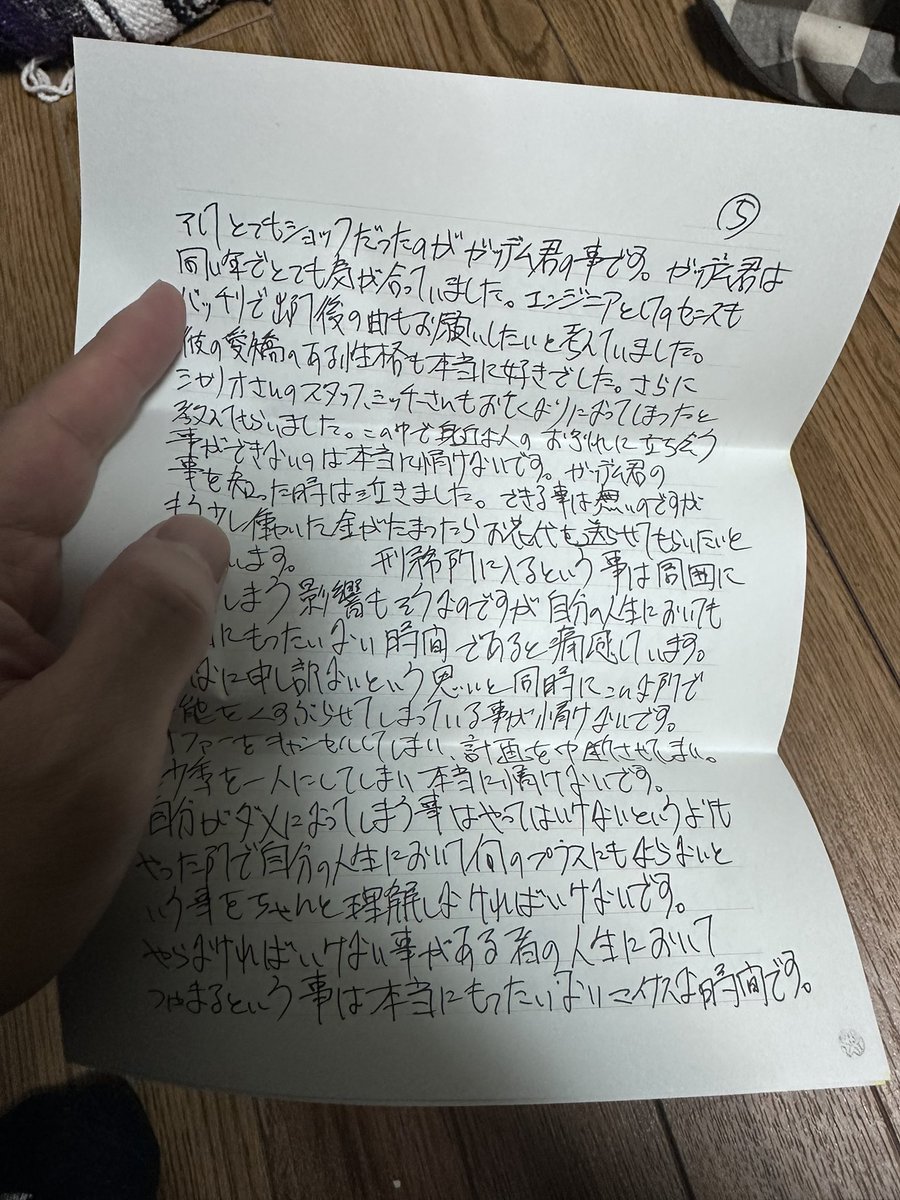 ⑤
そしてとてもショックだったのがガッデム君の事です。ガッデム君は
同い年でとても気が合っていました。エンジニアとしてのセンスも
バッチリで出所後の曲もお願いしたいと考えていました。
彼の愛嬌のある性格も本当に好きでした。さらに
さんのスタッフ、ミッチーさんもお亡くなりになってしまったと
教えてもらいました。この中で身近な人のお別れに立ち会う
事ができないのは本当に情けないです。ガッデム君の
事を知った時は泣きました。できる事は無いのですが
もう少し働いてお金がたまったらお花代を送らせてもらいたいと
います。 刑務所に入るという事は周囲に
しまう影響もそうなのですが自分の人生においても
にもったいない時間であると痛感しています。
に申し訳ないという思いと同時にこんな所で
能をくすぶらせてしまっている事が情けないです。
ファーをキャンセルしてしまい、計画を中断させてしまい。
を一人にしてしまい本当に情けないです。
自分がダメになってしまう事はやってはいけないというよりも
やった所で自分の人生において何のプラスにもならないと
いう事をちゃんと理解しなければいけないです。
やらなければいけない事がある者の人生において
つかまるという事は本当にもったいないマイナスな時間です。